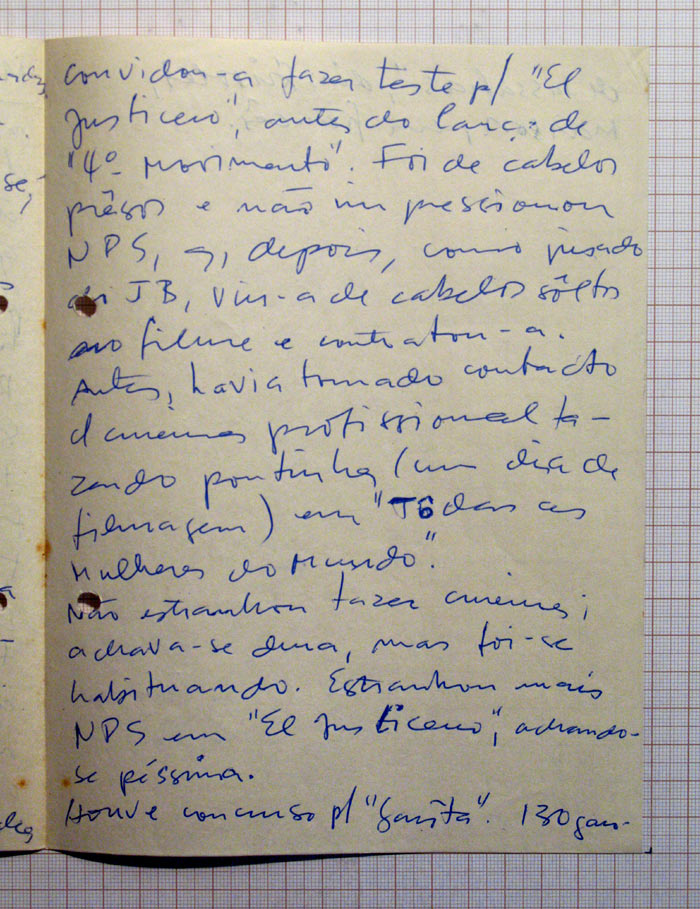 convidou-a fazer teste p/ "El
Justicero", antes do lanç. de
"4º Movimento". Foi de cabelos
prêsos e não impressionou
NPS, q, depois, como jurado
do JB, viu-a de cabelos sôltos
no filme e contratou-a.
Antes, havia tomado contacto
c/ cinema profissional fa-
zendo pontinha (um dia de
filmagem) em "Tôdas as
Mulheres do Mundo".
Não estranhou fazer cinema;
achava-se dura, mas foi-se
habituando. Estranhou mais
NPS em "El Justicero", achando-
se péssima.
Houve concurso p/ "Garôta". 130 gar-